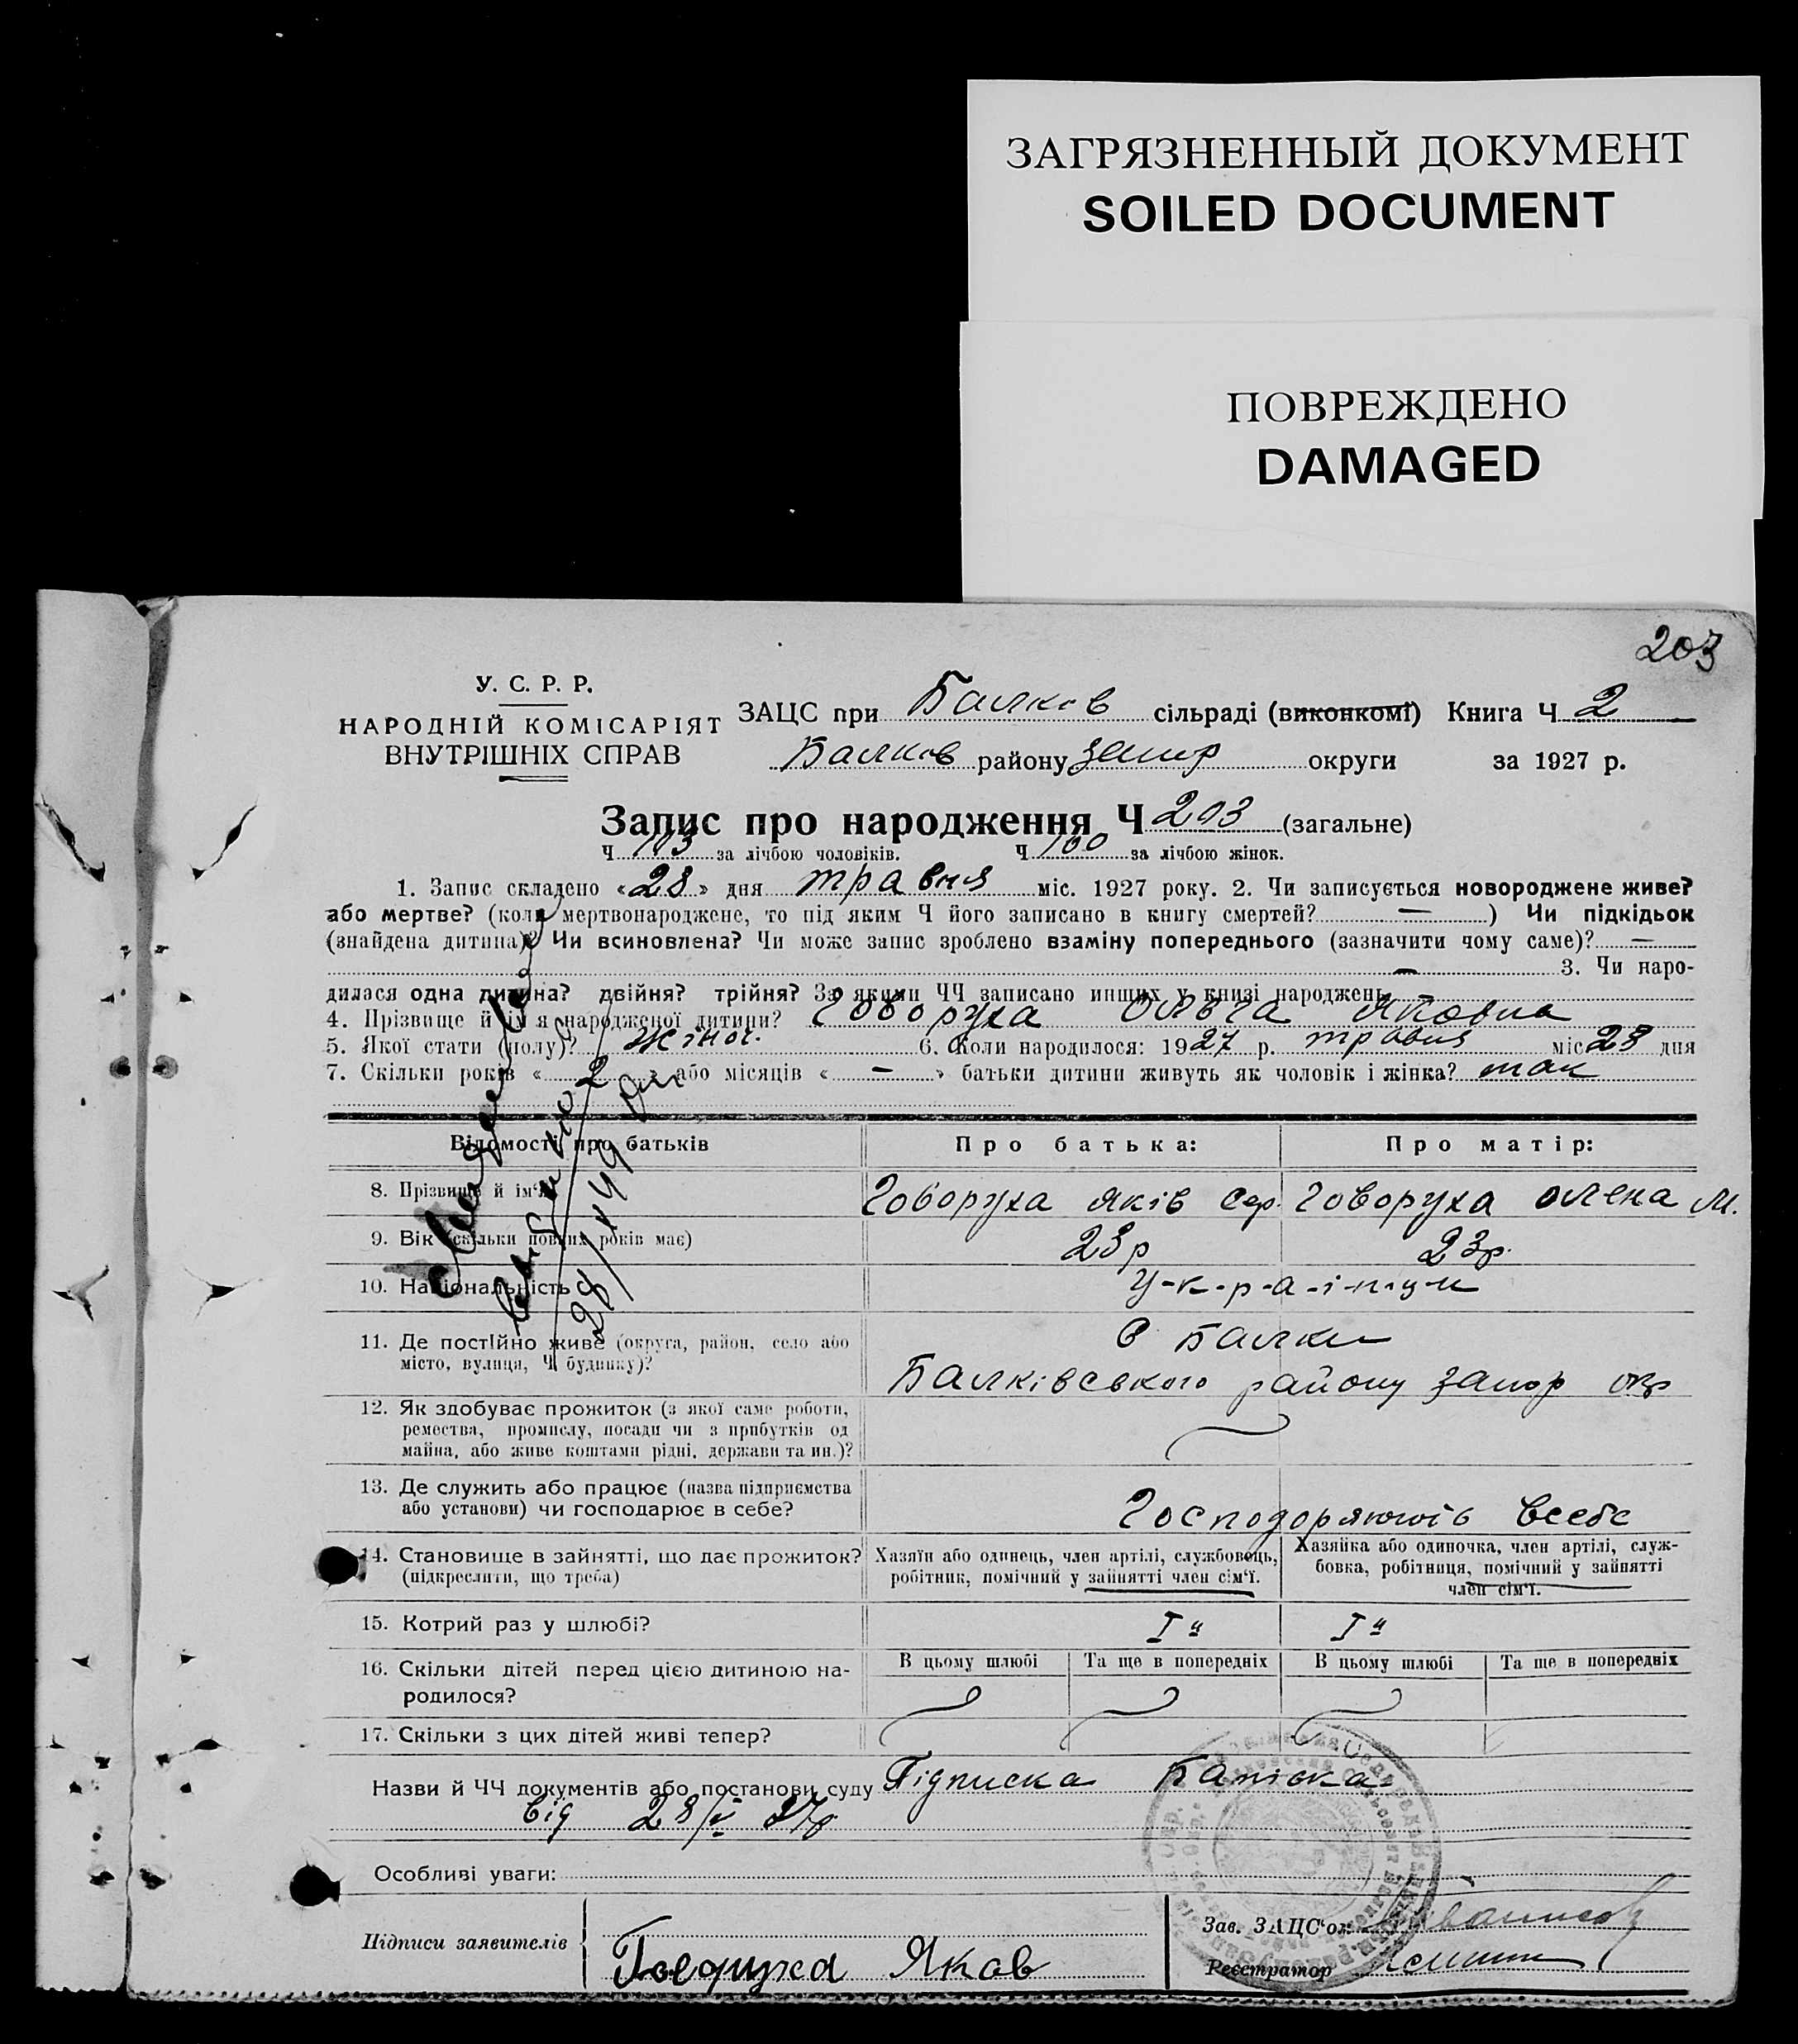 ЗАГРЯЗНЕННЫЙ ДОКУМЕНТ
SOILED DOCUMENT
ПОВРЕЖДЕНО
DAMAGED
203
У. С. Р. Р.
НАРОДНІЙ КОМІСАРІЯТ
ВНУТРІШНІХ СПРАВ
ЗАЦС при Балков сільраді (виконкомі) Книга Ч 2
Балков району запор округи за 1927 р.
Запис про народження Ч 203 (загальне)
Ч 103 за лічбою чоловіків. Ч 100 за лічбою жінок.
1. Запис складено «28» дня травня міс. 1927 року. 2. Чи записується новороджене живе?
або мертве? (коли мертвонароджене, то під яким Ч його записано в книгу смертей? — ) Чи підкідьок
(знайдена дитина)? Чи всиновлена? Чи може запис зроблено взаміну попереднього (зазначити чому саме)? —
— 3. Чи наро-
дилася одна дитина? двійня? трійня? За якими ЧЧ записано инших у книзі народжень
4. Прізвище й ім'я народженої дитини? Говоруха Ольга Яковна
5. Якої стати (полу)? жіноч. 6. Коли народилося: 1927 р. травня міс 28 дня
7. Скільки років « 2 » або місяців « — » батьки дитини живуть як чоловік і жінка? так
Відомості про батьків Про батька: Про матір:
8. Прізвище й ім'я Говоруха Яків Сер. Говоруха Олена М.
9. Вік (скільки повних років має) 23р 23р.
10. Національність У-к-р-а-ї-н-ц-и
11. Де постійно живе (округа, район, село або
місто, вулиця, Ч будинку)?
С Балки
Балківського району запор окр
12. Як здобуває прожиток (з якої саме роботи,
ремества, промислу, посади чи з прибутків од
майна, або живе коштами рідні, держави та ин.)?
13. Де служить або працює (назва підприємства
або установи) чи господарює в себе?
всебе
14. Становище в зайнятті, що дає прожиток?
(підкреслити, що треба)
Хазяїн або одинець, член артілі, службовець,
робітник, помічний у зайнятті член сім'ї.
Хазяйка або одиночка, член артілі, служ-
бовка, робітниця, помічний у зайнятті
член сім'ї.
15. Котрий раз у шлюбі? І й І й
16. Скільки дітей перед цією дитиною на-
родилося?
В цьому шлюбі Та ще в попередніх В цьому шлюбі Та ще в попередніх
17. Скільки з цих дітей живі тепер?
Назви й ЧЧ документів або постанови суду Підписка Батіока
від 28/V 27р
Особливі уваги:
Підписи заявителів
Яков
Зав. ЗАЦС'ом
Реєстратор